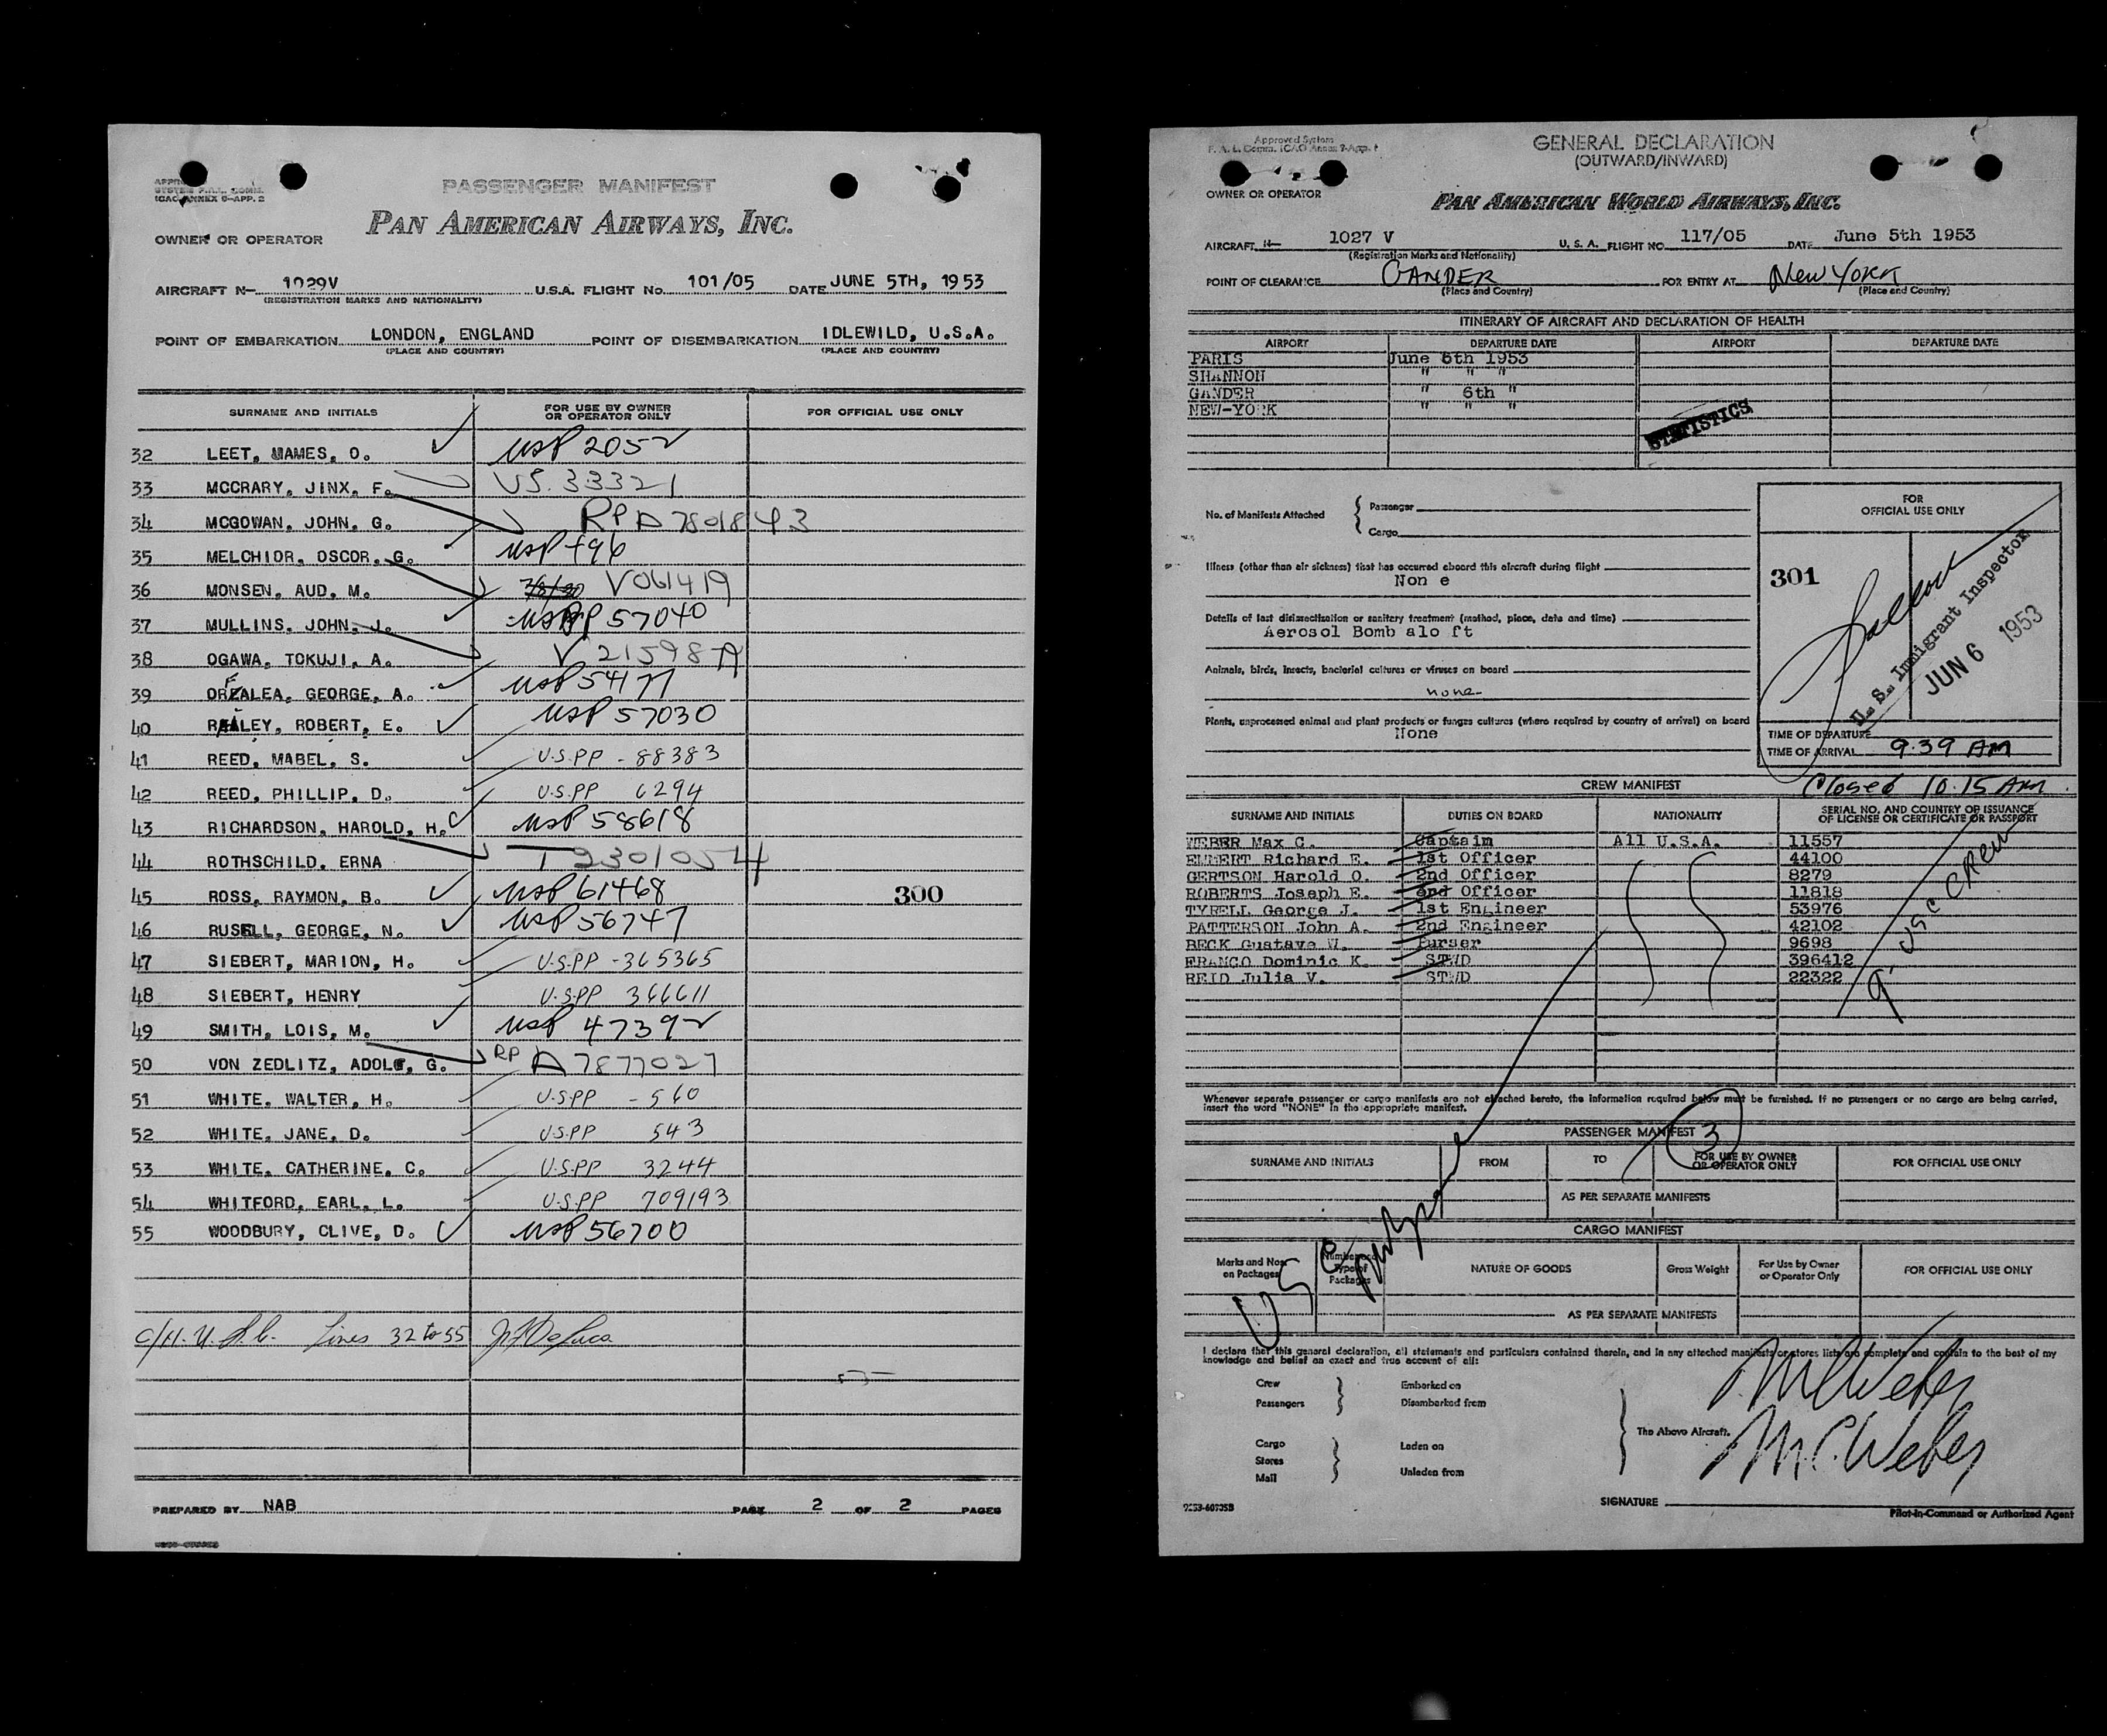 PASSENGER MANIFEST
SYSTEM F.A.L. COMM.
ICAO ANNEX 9-APP. 2
PAN AMERICAN AIRWAYS, INC.
OWNER OR OPERATOR
AIRCRAFT N- 1029V U.S.A. FLIGHT No. 101/05 DATE JUNE 5TH, 1953
(REGISTRATION MARKS AND NATIONALITY)
POINT OF EMBARKATION LONDON, ENGLAND POINT OF DISEMBARKATION IDLEWILD, U.S.A.
(PLACE AND COUNTRY) (PLACE AND COUNTRY)
SURNAME AND INITIALS FOR USE BY OWNER OR OPERATOR ONLY FOR OFFICIAL USE ONLY
32 LEET, MAMES, O. USP 2052
33 MCCRARY, JINX, F. US. 33321
34 MCGOWAN, JOHN, G. RP A7801843
35 MELCHIOR, OSCOR, G. USP 496
36 MONSEN, AUD, M. V061419
37 MULLINS, JOHN, J. USPP 57040
38 OGAWA, TOKUJI, A. V 215987
39 OREALEA, GEORGE, A. USP 54177
40 RAILEY, ROBERT, E. USP 57030
41 REED, MABEL, S. U.S.PP - 88383
42 REED, PHILLIP, D. U.S.PP 6294
43 RICHARDSON, HAROLD, H. USP 58618
44 ROTHSCHILD, ERNA T 2301054
45 ROSS, RAYMON, B. USP 61468 300
46 RUSELL, GEORGE, N. USP 56747
47 SIEBERT, MARION, H. U.S.PP - 365365
48 SIEBERT, HENRY U.S.PP 366611
49 SMITH, LOIS, M. USP 47392
50 VON ZEDLITZ, ADOLF, G. RP A7877027
51 WHITE, WALTER, H. U.S.PP - 560
52 WHITE, JANE, D. U.S.PP 543
53 WHITE, CATHERINE, C. U.S.PP 3244
54 WHITFORD, EARL, L. U.S.PP 709193
55 WOODBURY, CLIVE, D. USP 56700
Lines 32 to 55
PREPARED BY NAB PAGE 2 OF 2 PAGES
Approved System
F. A. L. Comm. ICAO Annex 9-App. 1
GENERAL DECLARATION
(OUTWARD/INWARD)
OWNER OR OPERATOR
PAN AMERICAN WORLD AIRWAYS, INC.
AIRCRAFT N- 1027 V U. S. A. FLIGHT NO. 117/05 DATE June 5th 1953
(Registration Marks and Nationality)
POINT OF CLEARANCE GANDER FOR ENTRY AT New York
(Place and Country) (Place and Country)
ITINERARY OF AIRCRAFT AND DECLARATION OF HEALTH
AIRPORT DEPARTURE DATE AIRPORT DEPARTURE DATE
PARIS June 5th 1953
SHANNON " " "
GANDER " 6th "
NEW-YORK " " "
STATISTICS
No. of Manifests Attached { Passenger
Cargo
FOR OFFICIAL USE ONLY
301
U. S. Immigrant Inspector
JUN 6 1953
Illness (other than air sickness) that has occurred aboard this aircraft during flight
Non e
Details of last disinsectization or sanitary treatment (method, place, date and time)
Aerosol Bomb alo ft
Animals, birds, insects, bacterial cultures or viruses on board
none
Plants, unprocessed animal and plant products or fungus cultures (where required by country of arrival) on board
None
TIME OF DEPARTURE
TIME OF ARRIVAL 9.39 AM
CREW MANIFEST Closed 10.15 AM.
SURNAME AND INITIALS DUTIES ON BOARD NATIONALITY SERIAL NO. AND COUNTRY OF ISSUANCE OF LICENSE OR CERTIFICATE OR PASSPORT
WEBER Max C. Captain All U.S.A. 11557
Richard E. 1st Officer 44100
GERTSON Harold O. 2nd Officer 8279
ROBERTS Joseph E. 3rd Officer 11818
TYRELL George J. 1st Engineer 53976
PATTERSON John A. 2nd Engineer 42102
BECK Gustave W. Purser 9698
FRANCO Dominic K. STWD 396412
REID Julia V. STWD 22322
9 USC CREW
Whenever separate passenger or cargo manifests are not attached hereto, the information required below must be furnished. If no passengers or no cargo are being carried,
insert the word "NONE" in the appropriate manifest.
PASSENGER MANIFEST 3
SURNAME AND INITIALS FROM TO FOR USE BY OWNER OR OPERATOR ONLY FOR OFFICIAL USE ONLY
AS PER SEPARATE MANIFESTS
CARGO MANIFEST
Marks and Nos. on Packages Number and Type of Packages NATURE OF GOODS Gross Weight For Use by Owner or Operator Only FOR OFFICIAL USE ONLY
AS PER SEPARATE MANIFESTS
I declare that this general declaration, all statements and particulars contained therein, and in any attached manifests or stores lists are complete and contain to the best of my
knowledge and belief an exact and true account of all:
Crew Embarked on
Passengers Disembarked from
The Above Aircraft.
Cargo Laden on
Stores
Mail Unladen from
M C Weber
M. C. Weber
SIGNATURE
Pilot-in-Command or Authorized Agent